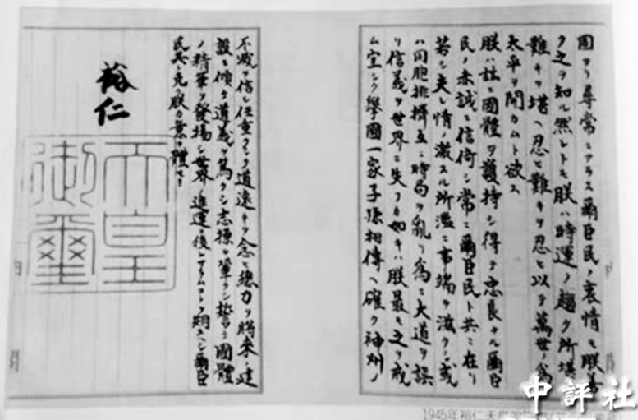 固ヨリ尋常ニアラス爾臣民ノ衷情モ朕善
ク之ヲ知ル然レトモ朕ハ時運ノ趨ク所堪ヘ
難キヲ堪ヘ忍ヒ難キヲ忍ヒ以テ萬世ノ為ニ
太平ヲ開カムト欲ス
朕ハ茲ニ國體ヲ護持シ得テ忠良ナル爾臣
民ノ赤誠ニ信倚シ常ニ爾臣民ト共ニ在リ
若シ夫レ情ノ激スル所濫ニ事端ヲ滋クシ或
ハ同胞排擠互ニ時局ヲ亂リ為ニ大道ヲ誤
リ信義ヲ世界ニ失フカ如キハ朕最モ之ヲ戒
ム宜シク擧國一家子孫相傳ヘ確ク神州ノ
不滅ヲ信シ任重クシテ道遠キヲ念ヒ總力ヲ將來ノ建
設ニ傾ケ道義ヲ篤クシ志操ヲ鞏クシ誓テ國體
ノ精華ヲ發揚シ世界ノ進運ニ後レサラムコトヲ期スヘシ爾臣
民其レ克ク朕カ意ヲ體セヨ
裕仁
天皇
御璽
中評社
1945年裕仁天皇